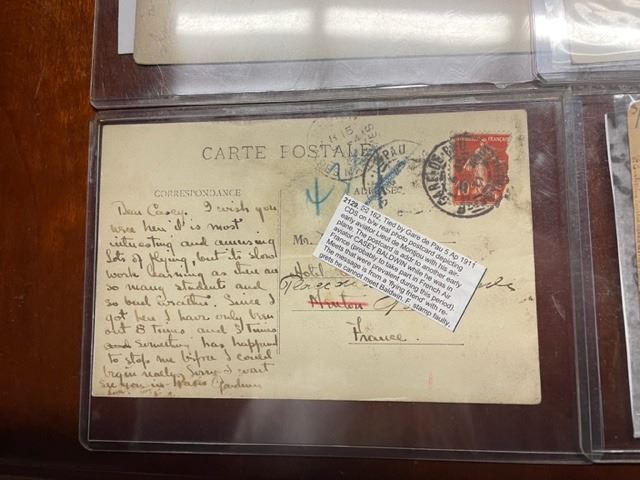 CARTE POSTALE
CORRESPONDANCE
Dear Casey. I wish you
were here it is most
interesting and amusing
Lots of flying, but its slow
work learning as there are
so many students and
so bad weather. Since I
got here I have only been
out 8 times and 3 times
something has happened
to stop me before I could
begin really. Sorry I wont
see you in Paris
ADRESSE
Mr.
Hotel
Menton
France.
PAU
GARE-DE-PAU
10
2129. 52 162, Tied by Gare de Pau 5 Ap 1911
CDS on b/w real photo postcard depicting
early aviator Lieut de Montjou with his air-
plane. The postcard is addr to another early
aviator CASEY BALDWIN while he was in
France (probably to take part in French Air
Meets that were prevalent during this period).
The message is from a 'flying friend' with re-
grets he cannot meet Baldwin, F, stamp faulty.